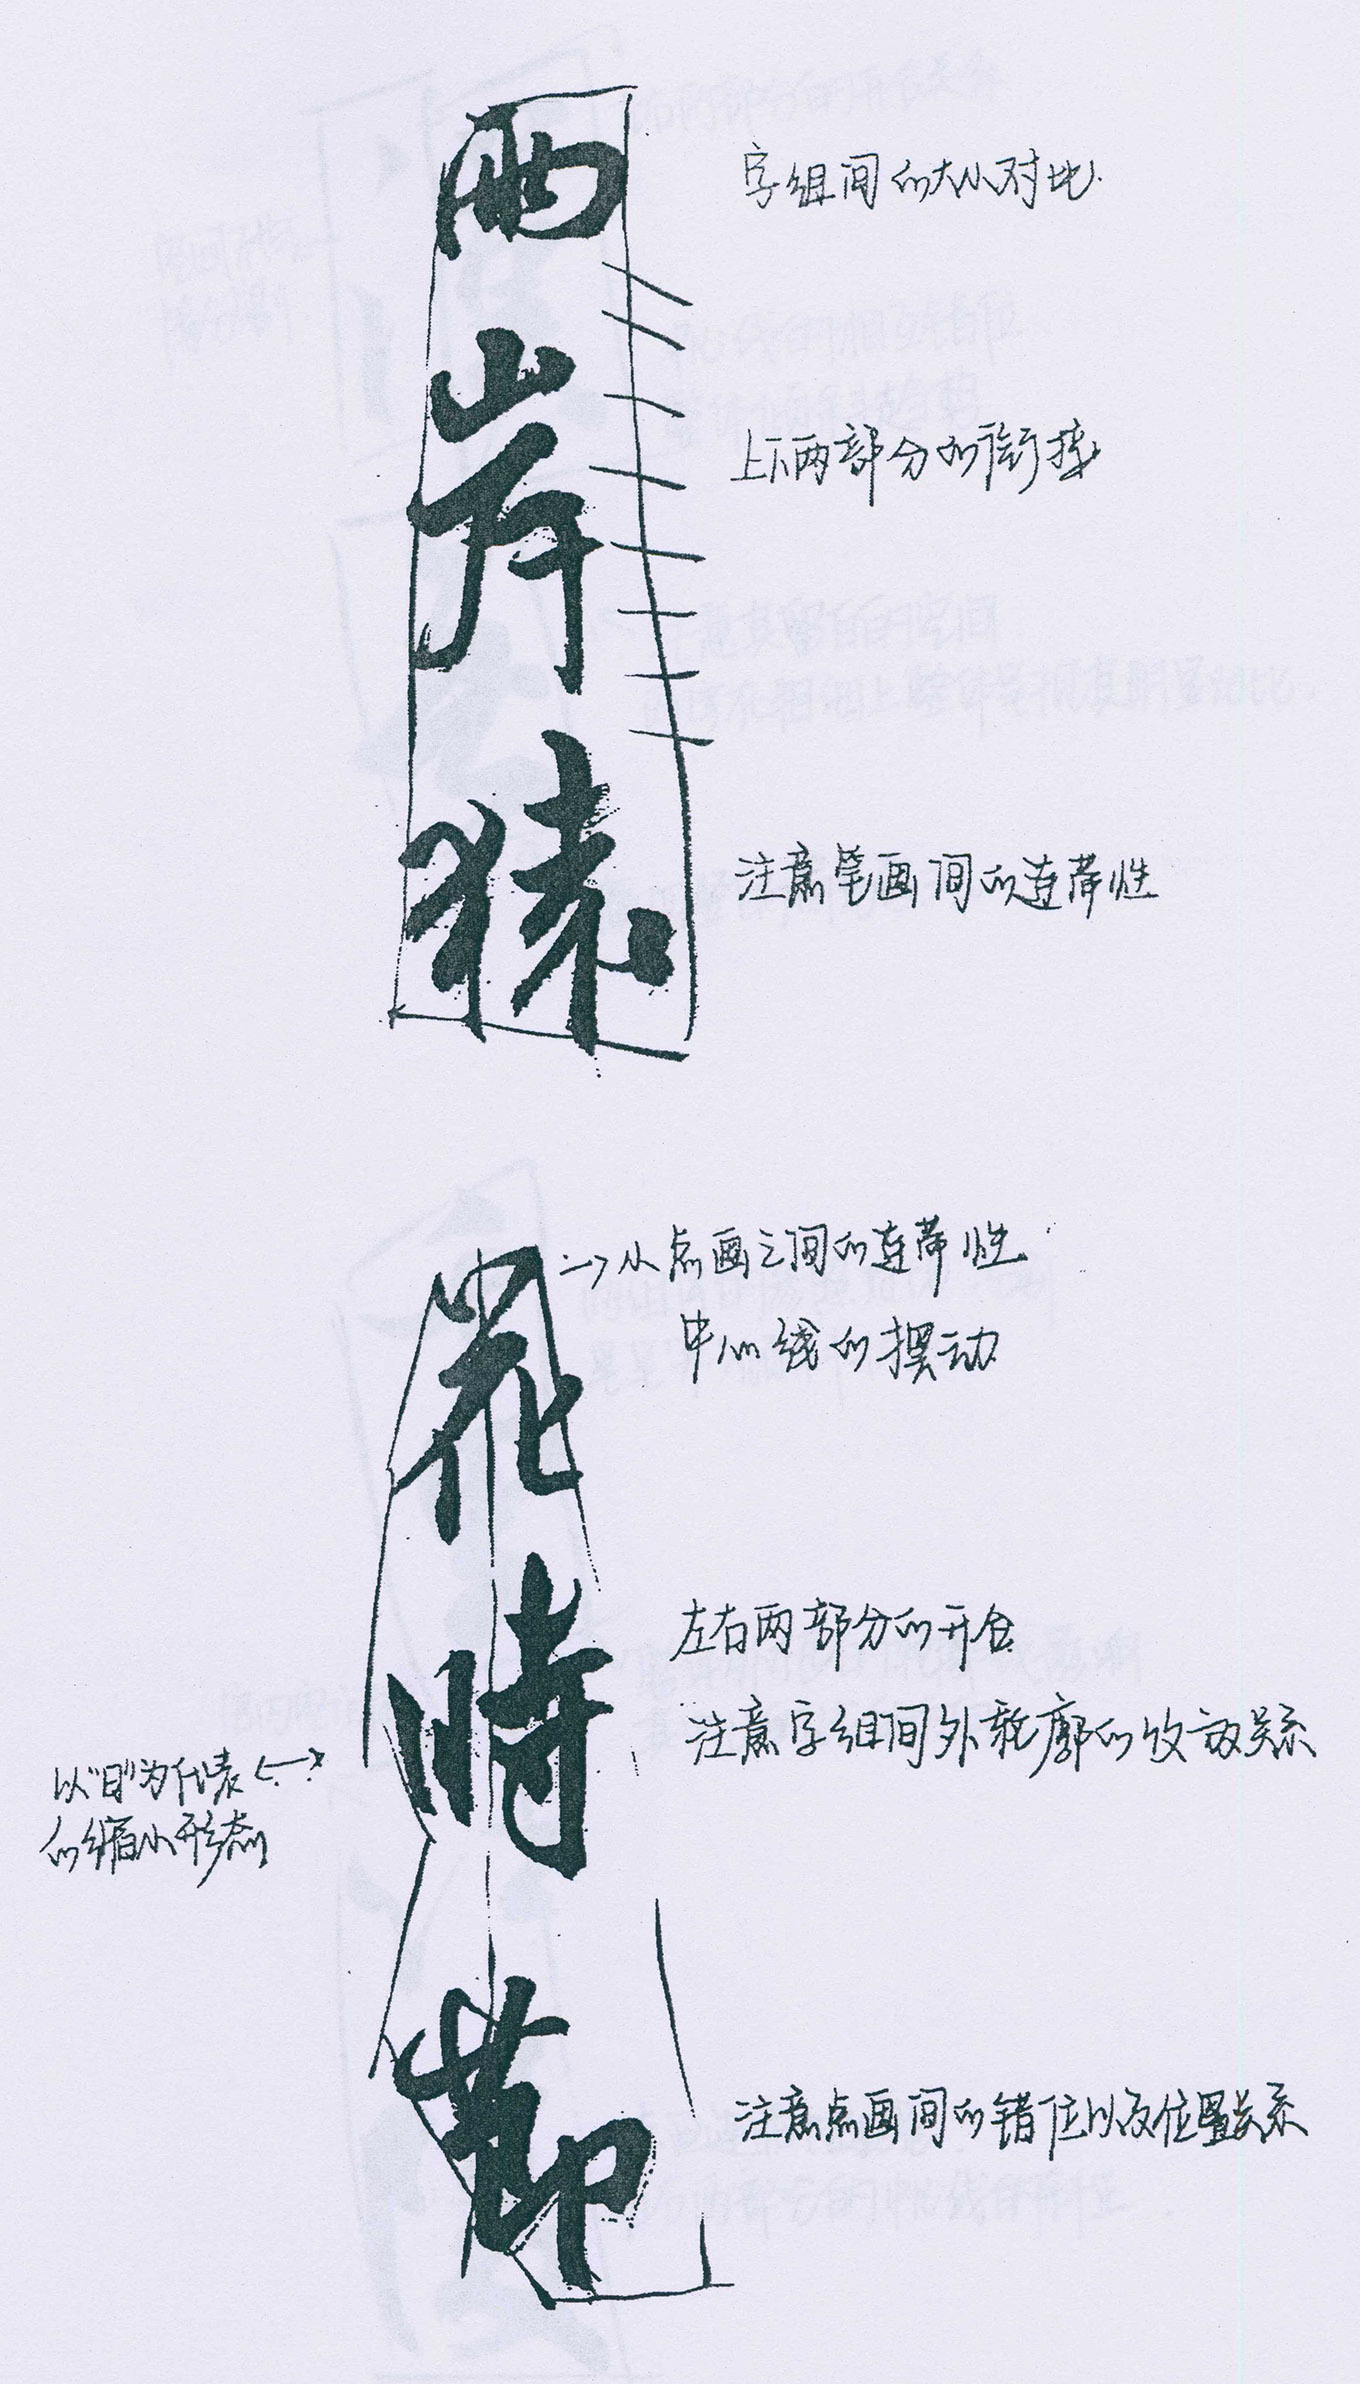 兩
字组间的大小对比.
岸
上下两部分的衔接
猿
注意笔画间的连带性
花
小点画之间的连带性
中心线的摆动
時
左右两部分的开合
注意字组间外轮廓的收放关系
以"日"为代表
的缩小形态
節
注意点画间的错位以及位置关系